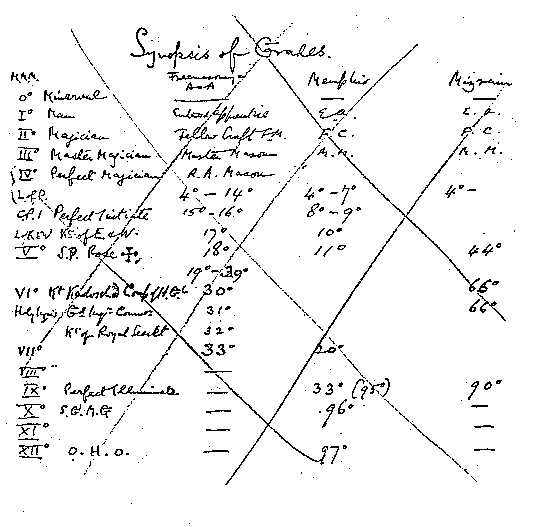 Synopsis of Grades.
M∴M∴M∴ Freemasonry Memphis Mizraim
A & A
0° Minerval —
I° Man Entered Apprentice E.A. E.A.
II° Magician Fellow Craft F.M. F.C. F.C.
III° Master Magician Master Mason M.M. M.M.
IV° Perfect Magician R.A. Mason
4° – 14° 4° – 7° 4° –
P.I. Perfect Initiate 15° – 16° 8° – 9°
Kt of E. & W. 17° 10°
V° S.P. Rose 18° 11° 44°
19° – 29°
VI° Kt Kadosch 30° 66°
Gd Insp. Comr 31° 66°
Kt of Royal Secret 32°
VII° 33° 20°
VIII° —
IX° Perfect Illuminate — 33° (95°) 90°
X° S.G.M.G — 96° —
XI° — —
XII° O.H.O. — 97° —